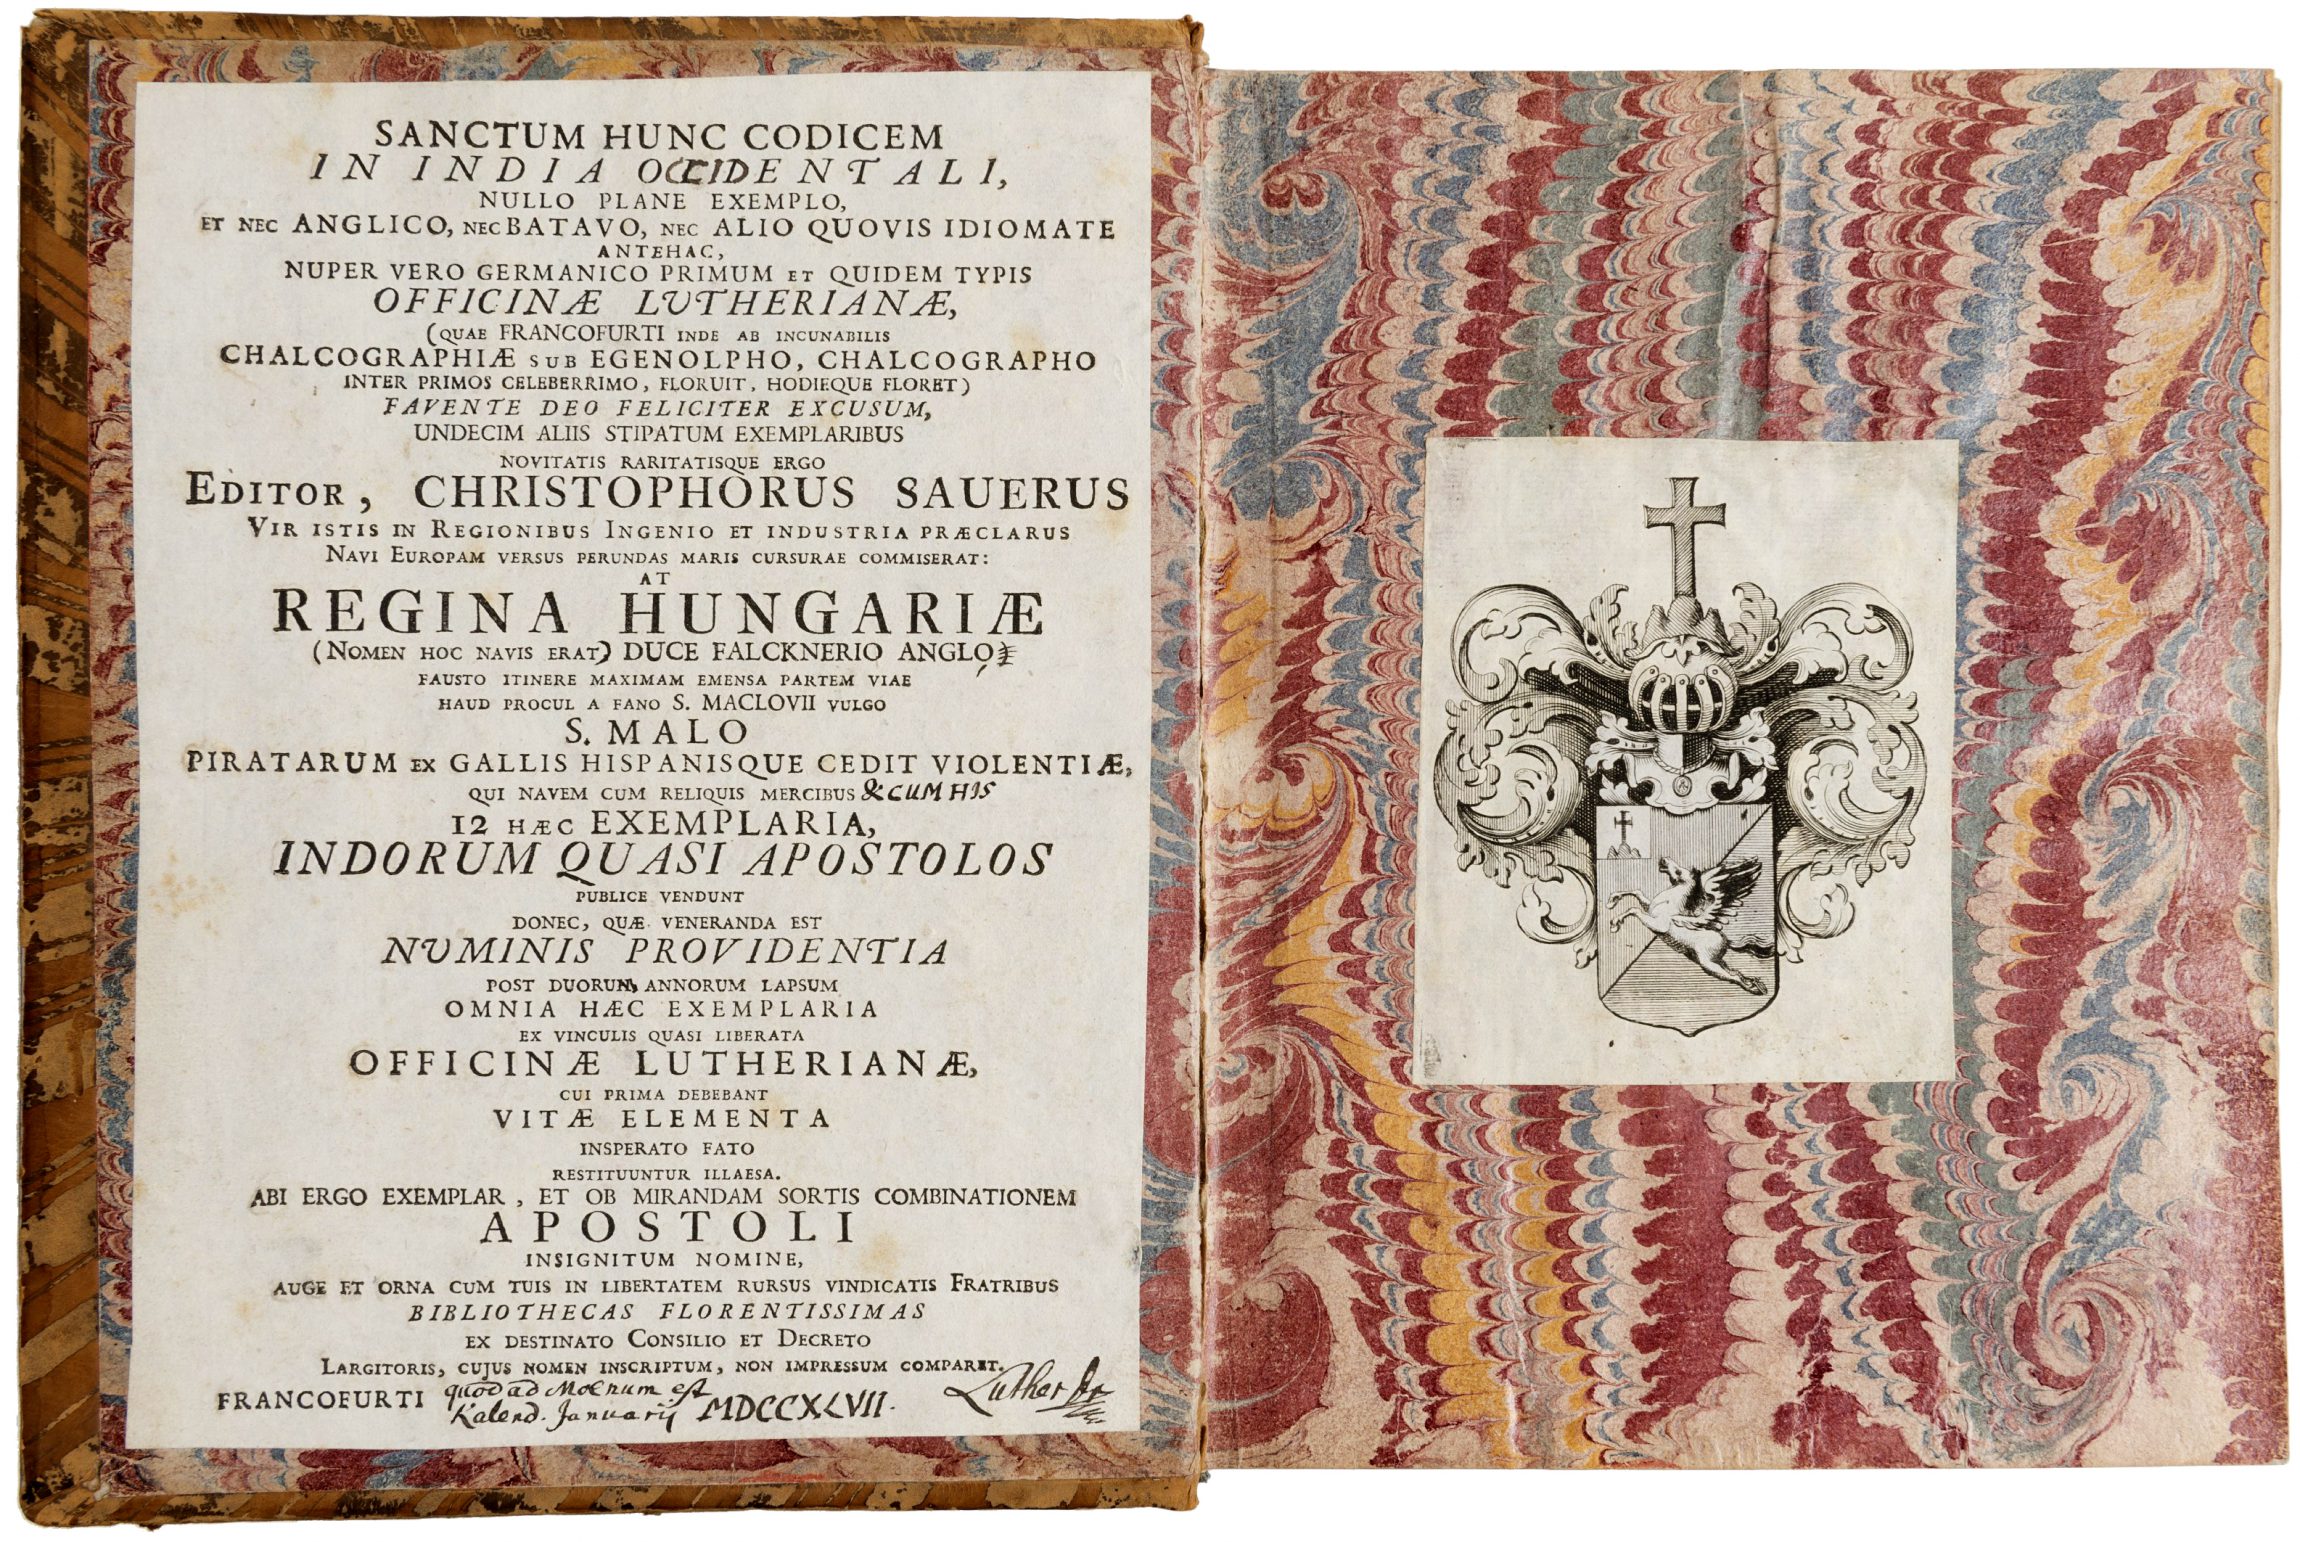 SANCTUM HUNC CODICEM
IN INDIA OCCIDENTALI,
NULLO PLANE EXEMPLO,
ET NEC ANGLICO, NEC BATAVO, NEC ALIO QUOVIS IDIOMATE
ANTEHAC,
NUPER VERO GERMANICO PRIMUM ET QUIDEM TYPIS
OFFICINÆ LUTHERIANÆ,
(QUAE FRANCOFURTI INDE AB INCUNABILIS
CHALCOGRAPHIÆ SUB EGENOLPHO, CHALCOGRAPHO
INTER PRIMOS CELEBERRIMO, FLORUIT, HODIEQUE FLORET)
FAVENTE DEO FELICITER EXCUSUM,
UNDECIM ALIIS STIPATUM EXEMPLARIBUS
NOVITATIS RARITATISQUE ERGO
EDITOR, CHRISTOPHORUS SAUERUS
VIR ISTIS IN REGIONIBUS INGENIO ET INDUSTRIA PRÆCLARUS
NAVI EUROPAM VERSUS PERUNDAS MARIS CURSURAE COMMISERAT:
AT
REGINA HUNGARIÆ
(NOMEN HOC NAVIS ERAT) DUCE FALCKNERIO ANGLO
FAUSTO ITINERE MAXIMAM EMENSA PARTEM VIAE
HAUD PROCUL A FANO S. MACLOVII VULGO
S. MALO
PIRATARUM EX GALLIS HISPANISQUE CEDIT VIOLENTIÆ,
QUI NAVEM CUM RELIQUIS MERCIBUS & CUM HIS
12 HÆC EXEMPLARIA,
INDORUM QUASI APOSTOLOS
PUBLICE VENDUNT
DONEC, QUÆ VENERANDA EST
NUMINIS PROVIDENTIA
POST DUORUM ANNORUM LAPSUM
OMNIA HÆC EXEMPLARIA
EX VINCULIS QUASI LIBERATA
OFFICINÆ LUTHERIANÆ,
CUI PRIMA DEBEBANT
VITÆ ELEMENTA
INSPERATO FATO
RESTITUUNTUR ILLAESA.
ABI ERGO EXEMPLAR, ET OB MIRANDAM SORTIS COMBINATIONEM
APOSTOLI
INSIGNITUM NOMINE,
AUGE ET ORNA CUM TUIS IN LIBERTATEM RURSUS VINDICATIS FRATRIBUS
BIBLIOTHECAS FLORENTISSIMAS
EX DESTINATO CONSILIO ET DECRETO
LARGITORIS, CUJUS NOMEN INSCRIPTUM, NON IMPRESSUM COMPARET.
FRANCOFURTI quod ad Moenum est
Kalend. Januarij MDCCXLVII.
Luther